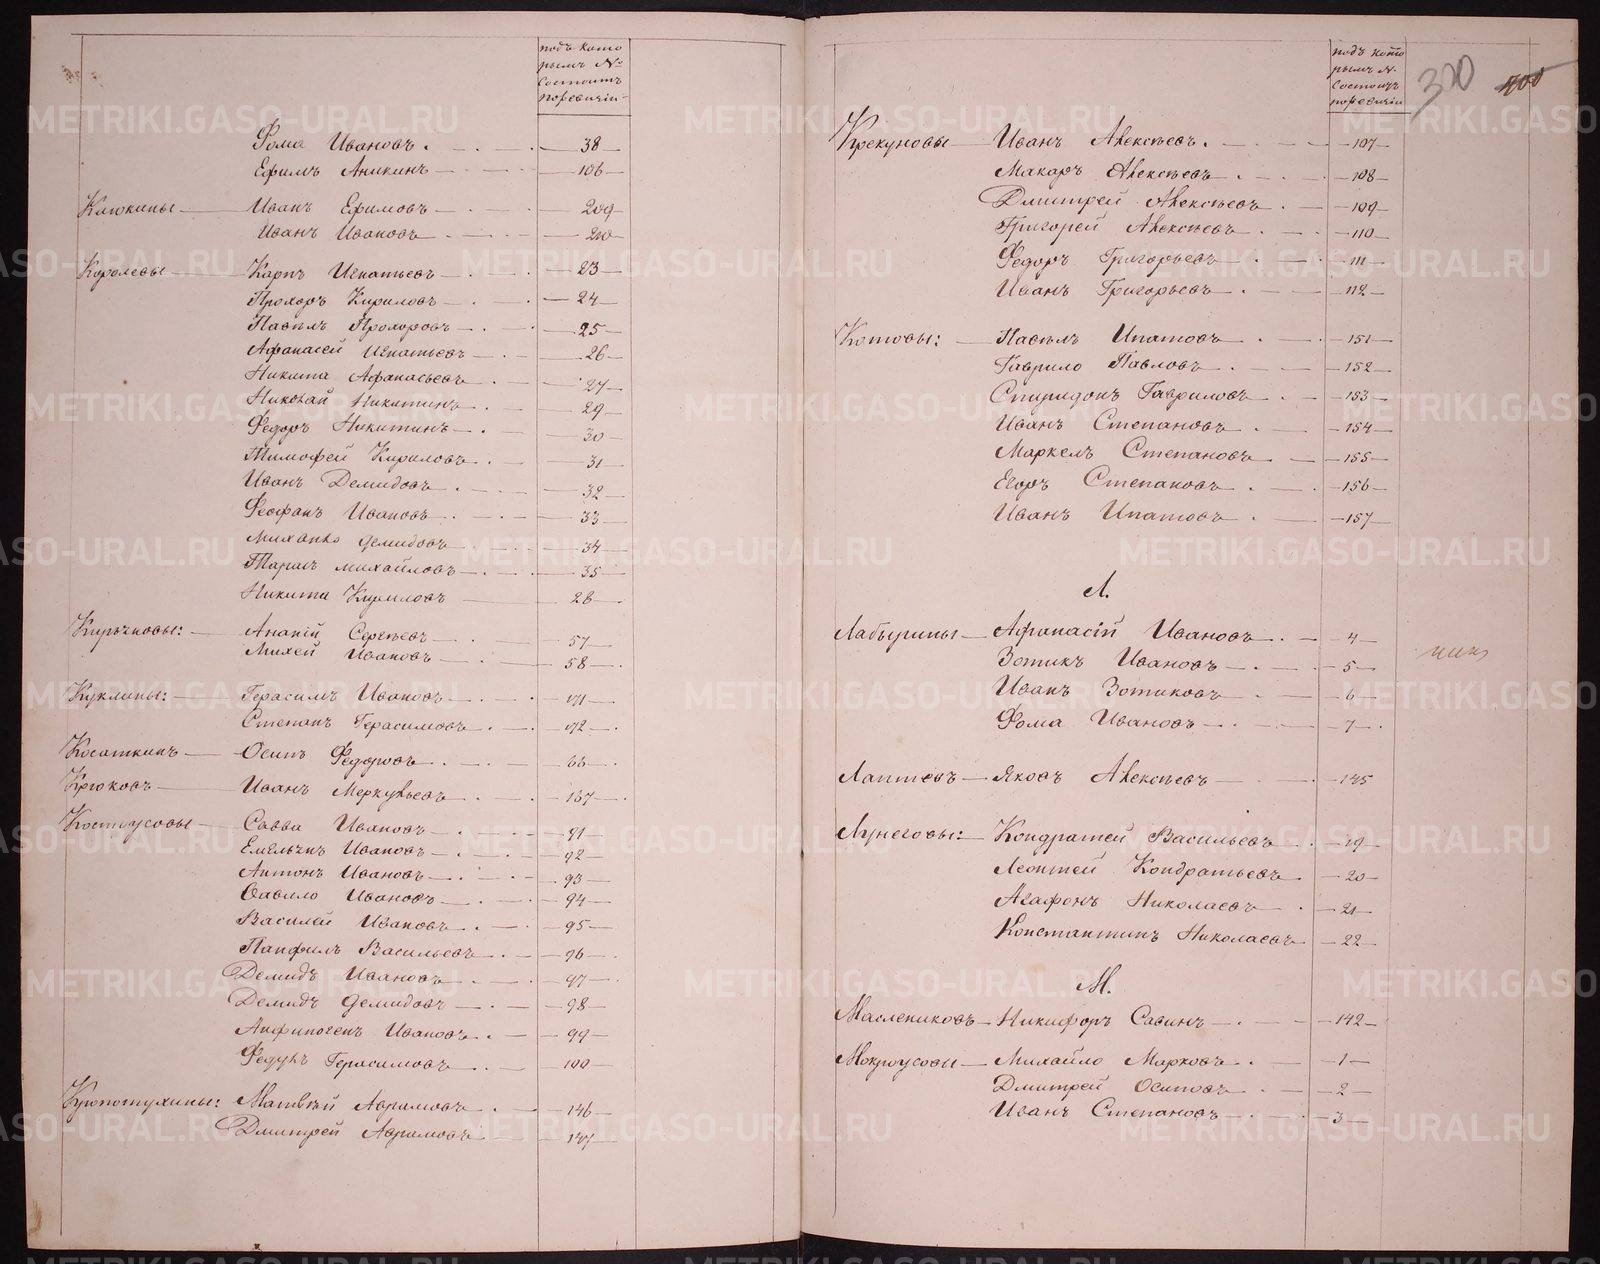 подъ кото
рымъ №
состоитъ
поревизiи
Фома Ивановъ. 38
Ефимъ Аникинъ 106
Клюкины Иванъ Ефимовъ 209
Иванъ Ивановъ 210
Королевы Карпъ Игнатьевъ 23
Прохоръ Кириловъ 24
Павѣлъ Прохоровъ 25
Афанасей Игнатьевъ 26
Никита Афанасьевъ 27
Николай Никитинъ 29
Федоръ Никитинъ 30
Тимофей Кириловъ 31
Иванъ Демидовъ 32
Феофанъ Ивановъ 33
Михайло Демидовъ 34
Тарасъ Михайловъ 35
Никита Кириловъ 28
Ананiй Сергѣевъ 57
Михей Ивановъ 58
Куклины: Герасимъ Ивановъ 171
Степанъ Герасимовъ 172
Косаткинъ Осипъ Федоровъ 66
Крюковъ Иванъ Меркульевъ 137
Костоусовы Савва Ивановъ 91
Емельянъ Ивановъ 92
Антонъ Ивановъ 93
Савело Ивановъ 94
Василей Ивановъ 95
Панфилъ Васильевъ 96
Демидъ Ивановъ 97
Демидъ Демидовъ 98
Анфиногенъ Ивановъ 99
Федулъ Герасимовъ 100
Кропотухины: Матвѣй Аврамовъ 146
Дмитрей Аврамовъ 147
подъ кото
рымъ N.
состоитъ
поревизiи
300
Крекуновы Иванъ Алексѣевъ. 107
Макаръ Алексѣевъ 108
Дмитрей Алексѣевъ 109
Григорей Алексѣевъ 110
Федоръ Григорьевъ 111
Иванъ Григорьевъ 112
Котовы: Павѣлъ Ипатовъ 151
Гаврило Павловъ 152
Спиридонъ Гавриловъ 153
Иванъ Степановъ 154
Маркелъ Степановъ 155
Егоръ Степановъ 156
Иванъ Ипатовъ 157
Л.
Лабырины Афанасiй Ивановъ 4
Зотикъ Ивановъ 5
Иванъ Зотиковъ 6
Фома Ивановъ 7
Лаптевъ Яковъ Алексѣевъ 145
Лунеговы: Кондратей Васильевъ 19
Леонтей Кондратьевъ 20
Агафонъ Николаевъ 21
Константинъ Николаевъ 22
М.
Маслениковъ Никифоръ Савинъ 142
Мокроусовы Михайло Марковъ 1
Дмитрей Осиповъ 2
Иванъ Степановъ 3
METRIKI.GASO-URAL.RU